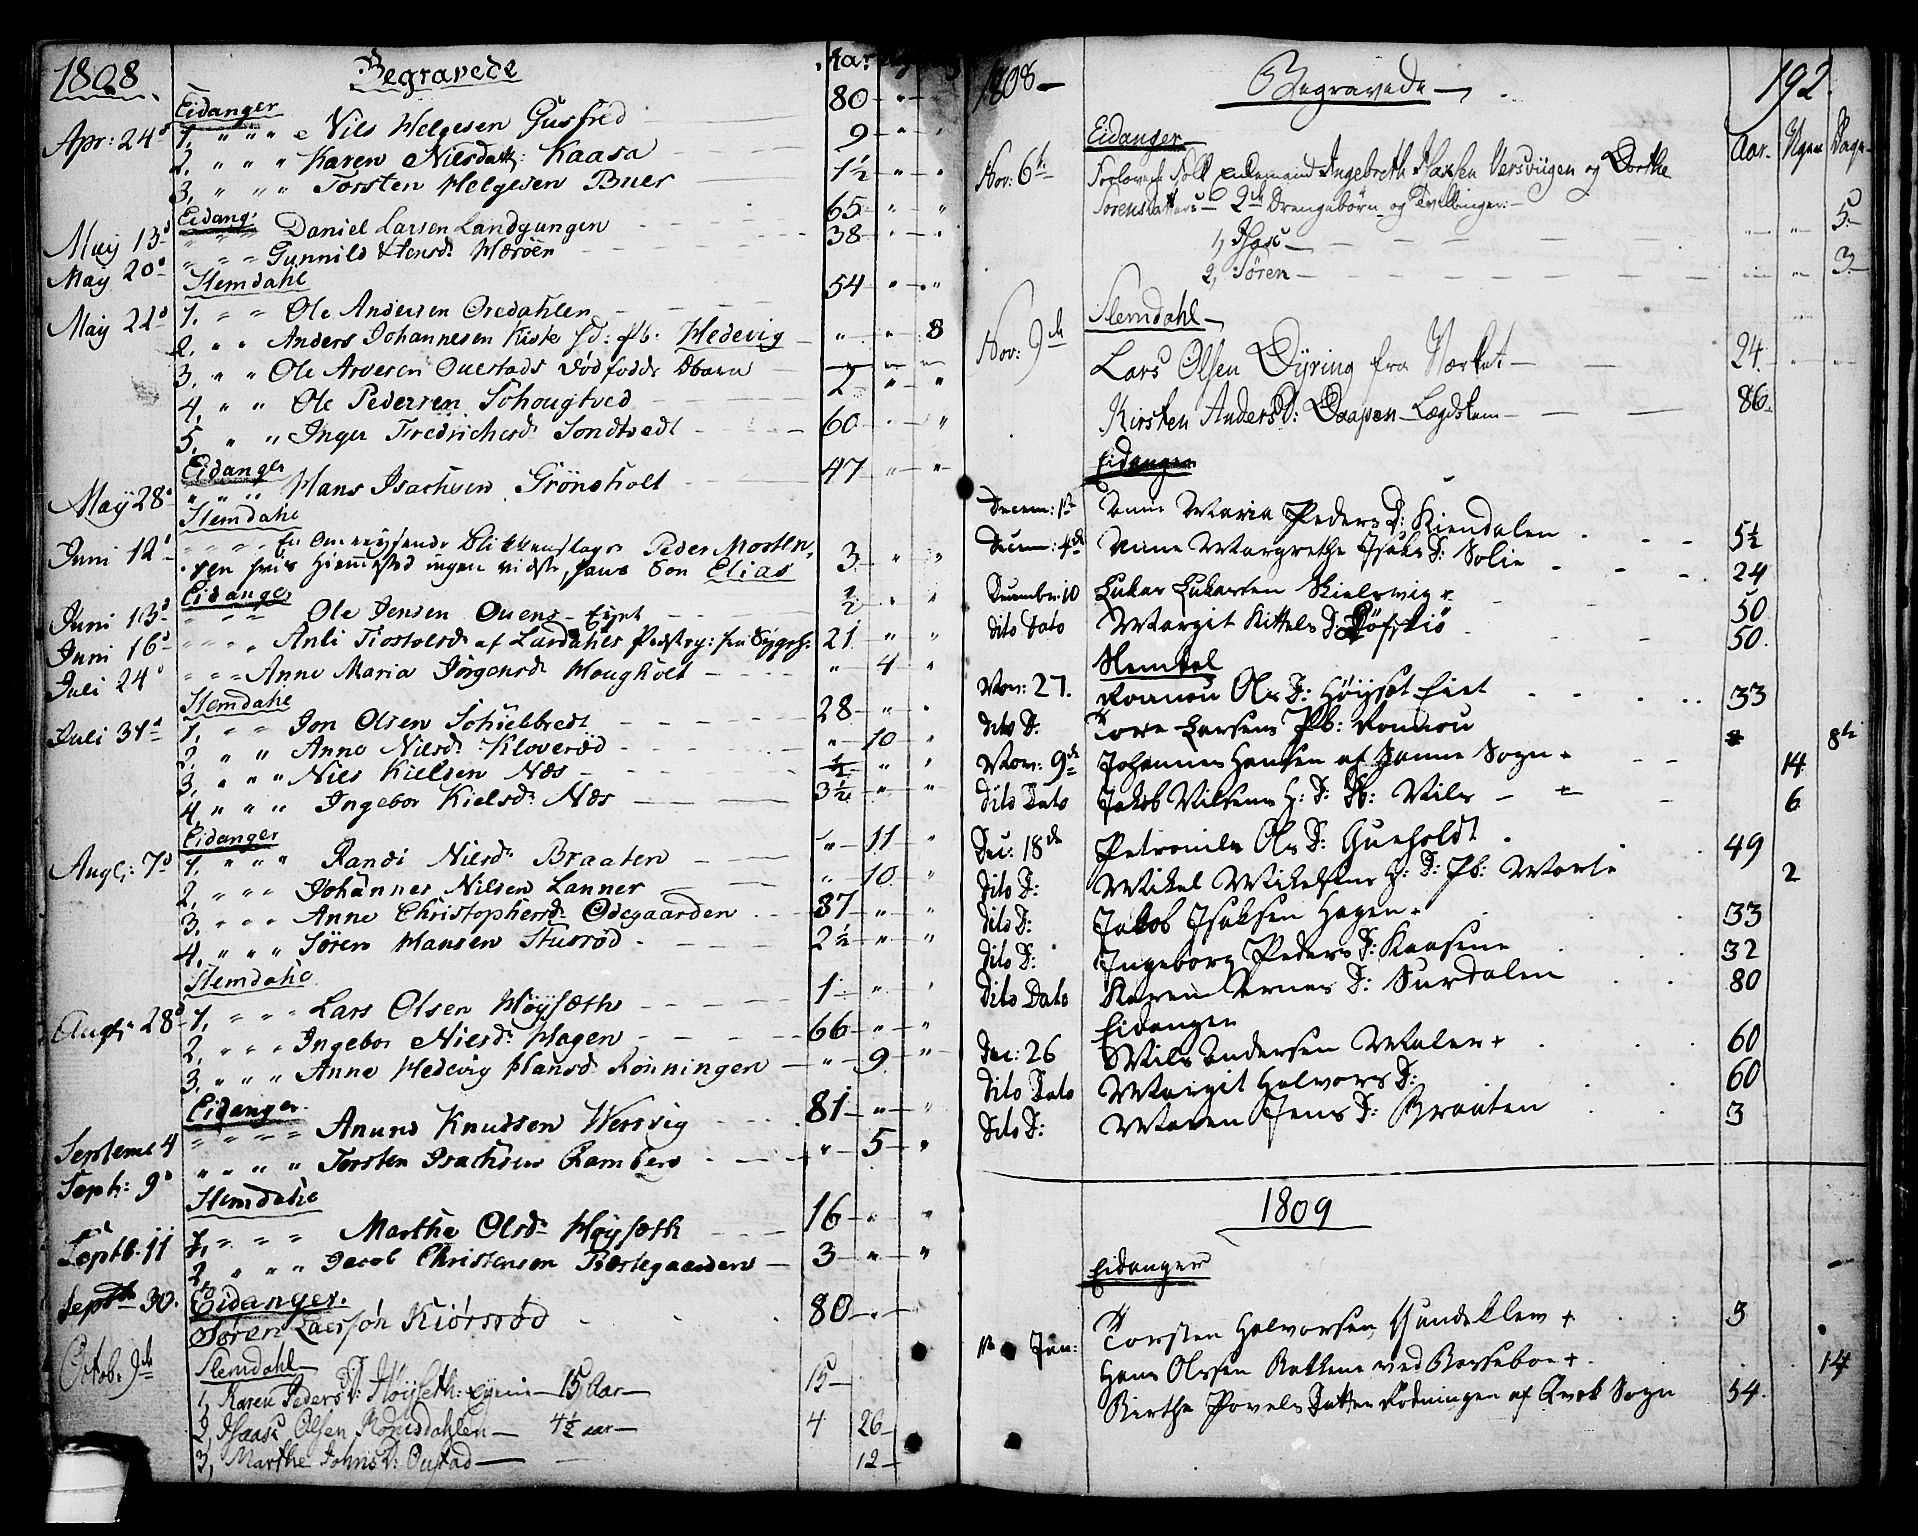 1808. Begravede Aar
Eidanger
Apr: 24d 1, " " " Nils Helgesen Gusfred 80 - " - "
2, " " " Karen Nilsdatt: Kaasa 9 " "
3, " " " Torsten Helgesen Buer 1½ " "
Eidang:
May 13d Daniel Larsen Landgungen 65 " "
May 20d " " " Gunnild Hærøen 38 " "
Slemdahl
May 22d 1. " " Ole Andersen Oredahlen 54 " "
2. " " Anders Johannesen Kiste fb: Hedevig " " 8
3, " " Ole Arvesen Ouestads Dødfødde Barn
4, " " Ole Pedersen Schougtved 2 " "
5, " " Inger Fredrichsd: Sondtvedt 60 " "
Eidanger
May 28d " " " Hans Isachsen Grönsholt 47 " "
Slemdahl
Juni 12d " " " En Omreysende Blikkenslager Peder Mosten,
sen hvis Hiemmsted ingen vidste, hans Søn Elias 3 " "
Eidanger
Juni 13d " " " Ole Jensen Ouens - Eyet ½ " "
Juni 16d " " " Anli Tiostolsd: af Lardahls Pdstrg: 21 " "
Juli 24d " " " Anne Maria Jörgensd: Hougholt " 4 "
Slemdahl
Juli 31d 1, " " Jon Olsen Schielbredt 28 " "
2, " " Anne Nilsd: Kloverød " 10 "
3, " " Niels Kielsen Næs ½ " "
4, " " " Ingebor Kielsd: Næs 3½ " "
Eidanger
Augs: 7d 1, " " " Randi Nielsd: Braaten " 11 "
2, " " " Johannes Nilsen Lanner " 10 "
3, " " " Anne Christophersd: Ødegaarden 87 " "
4, " " " Sören Hansen Stusrød 2½ " "
Slemdahl
Augst: 28d 1, " " " Lars Olsen Höysæth 1 " "
2, " " " Ingebor Nielsd: Hagen 66 " "
3, " " " Anne Hedevig Hansd: Rönningen " 9 "
Eidanger
Septemb 4 " " " " Anund Knudsen Wersvig 81 " "
Septb: 9d " " " " Torsten Isachsen Ramberg " 5 "
Slemdahl
Septb. 11 1, " " " Marthe Olsd: Höysæth 16 " "
2, " " " Jacob Christensen Bærtegaardens 3 " "
Septb 30. Eidanger.
Sören Laersøn Kiörsrød 80 "
Octob: 9de Slemdahl
1, Karen Peders D: Höyseth: Eynie 15 Aar 15
2, Isaac Olsen Rönisdahlen 4½ aar 4 26
3, Marthe Johns D: Oustad 12
1808 Begravede 192.
Eidanger Aar. Ugen Dage
Nov: 6te Forlovede Folk Enkemand Ingebreth Isaksen Versviigen og Dorthe
Sörensdatters 2de Drengebörn og Tvillinger:
1, Isac 5
2, Sören 3
Slemdahl
Nov: 9de Lars Olsen Dyring fra Værket 24 " "
Kirsten Anders D: Daapen Lægdslem 86
Eidanger
Decem: 1te Anne Maria Peders D: Kiendalen 5½
Decem: 4de Anne Margrethe Isaks D: Solie 24
December: 10 Lukas Lukassen Skielsvig 50
dito Dato Margit Kittels D: 50.
Slemdal
Nov: 27. Ronnou Ols D: Höyset Eiet 33
dito D. Tore Larsens Pb: Ronnou 8te
Nov: 9de Johannes Hansen af Sanne Sogn 14
dito Dato Jakob Nilsens H: D: Db: Nils 6
Dec: 18de Petronele Ols D: Gueholdt 49
dito D: Mikel Mikelsens H: D: Pb: Marte 2
dito D: Jakob Isaksen Hagen 33
dito D: Ingeborg Peders D: Kaasene 32
dito Dato Karen Arnes D: Surdalen 80
Eidanger
Dec: 26 Nils Andersen Malen 60
dito Dato Margit Halvors D: 60
dito D: Maren Jens D: Braaten 3
1809
Eidanger
Torsten Halvorsen Gundeklev 3
Jan: Hans Olesen Bakkene ved Barseboe 14
Birthe Povels Datter Rödningen af Qvek Sogn 54.